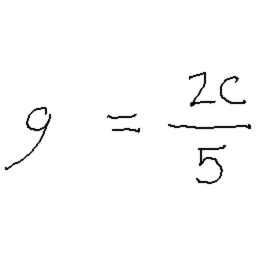 9 = \frac{2c}{5}